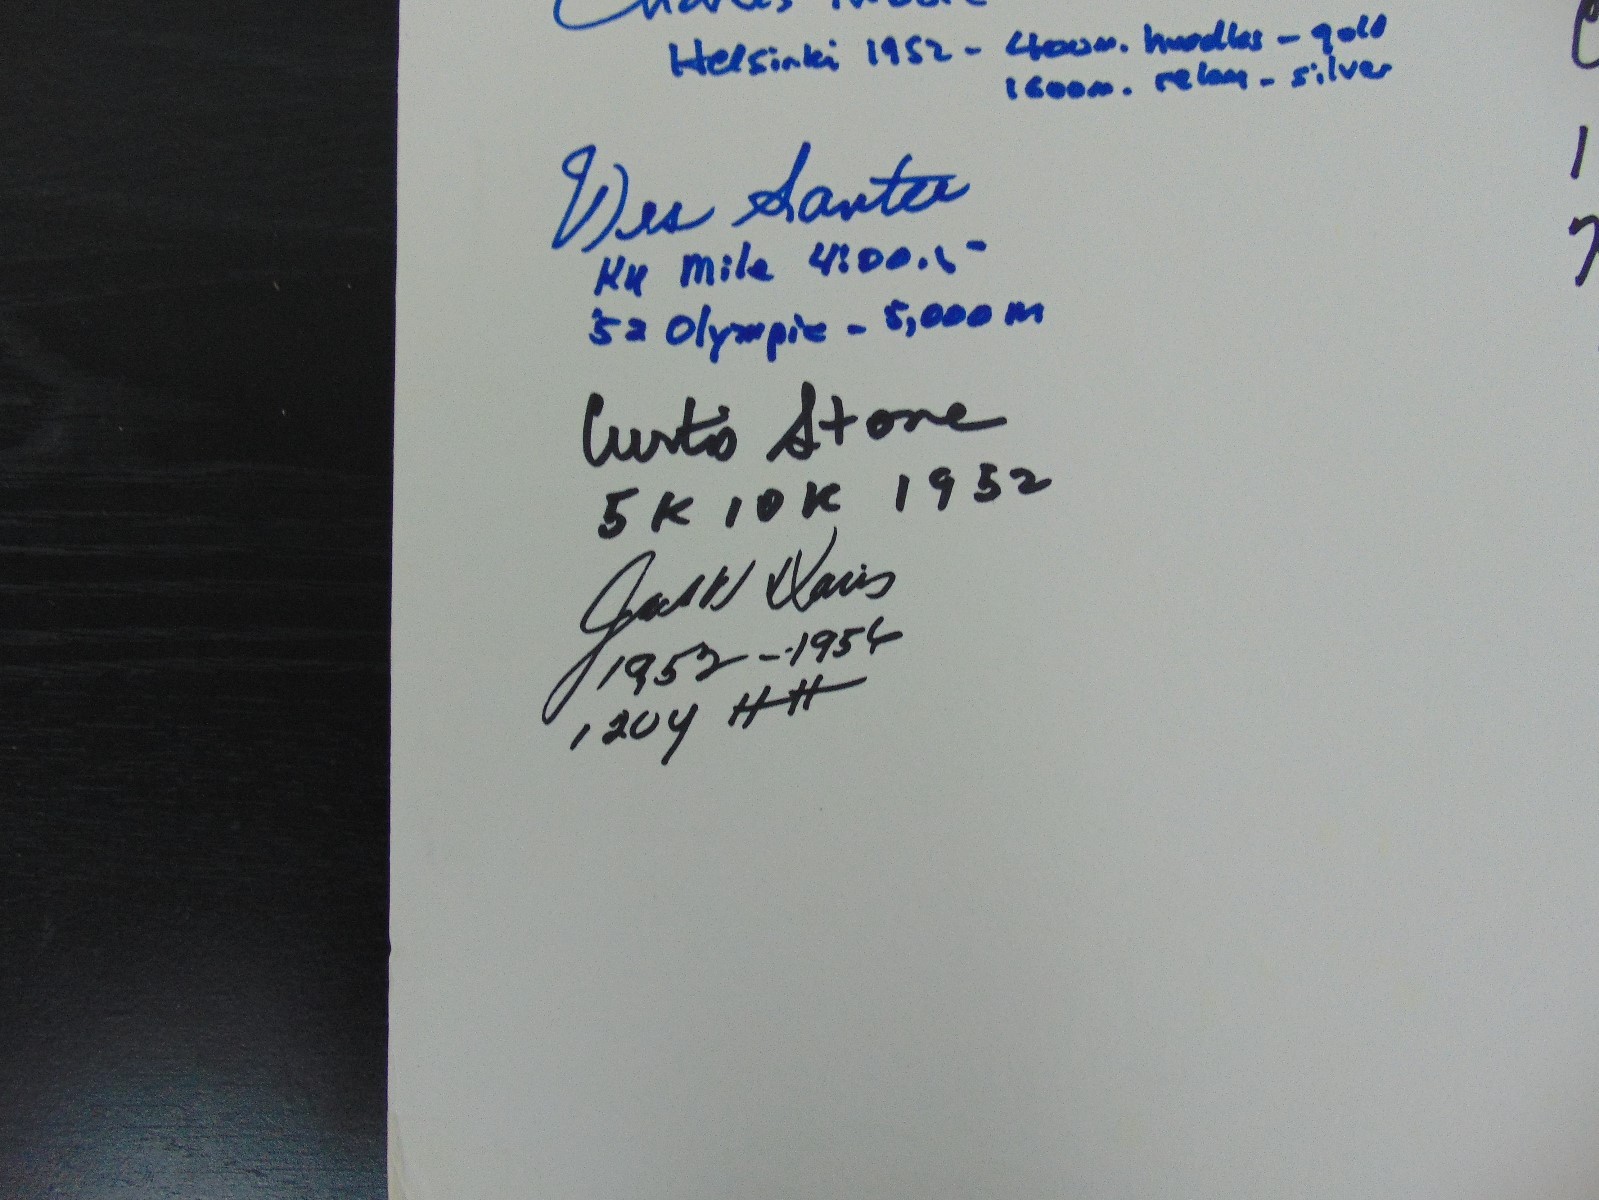 Charles Moore
Helsinki 1952 - 400m. hurdles - gold
1600m. relay - silver
Wes Santee
Mile 4:00.5
'52 Olympic - 5,000 m
Curtis Stone
5K 10K 1952
Jack W Davis
1952 - 1956
120y HH